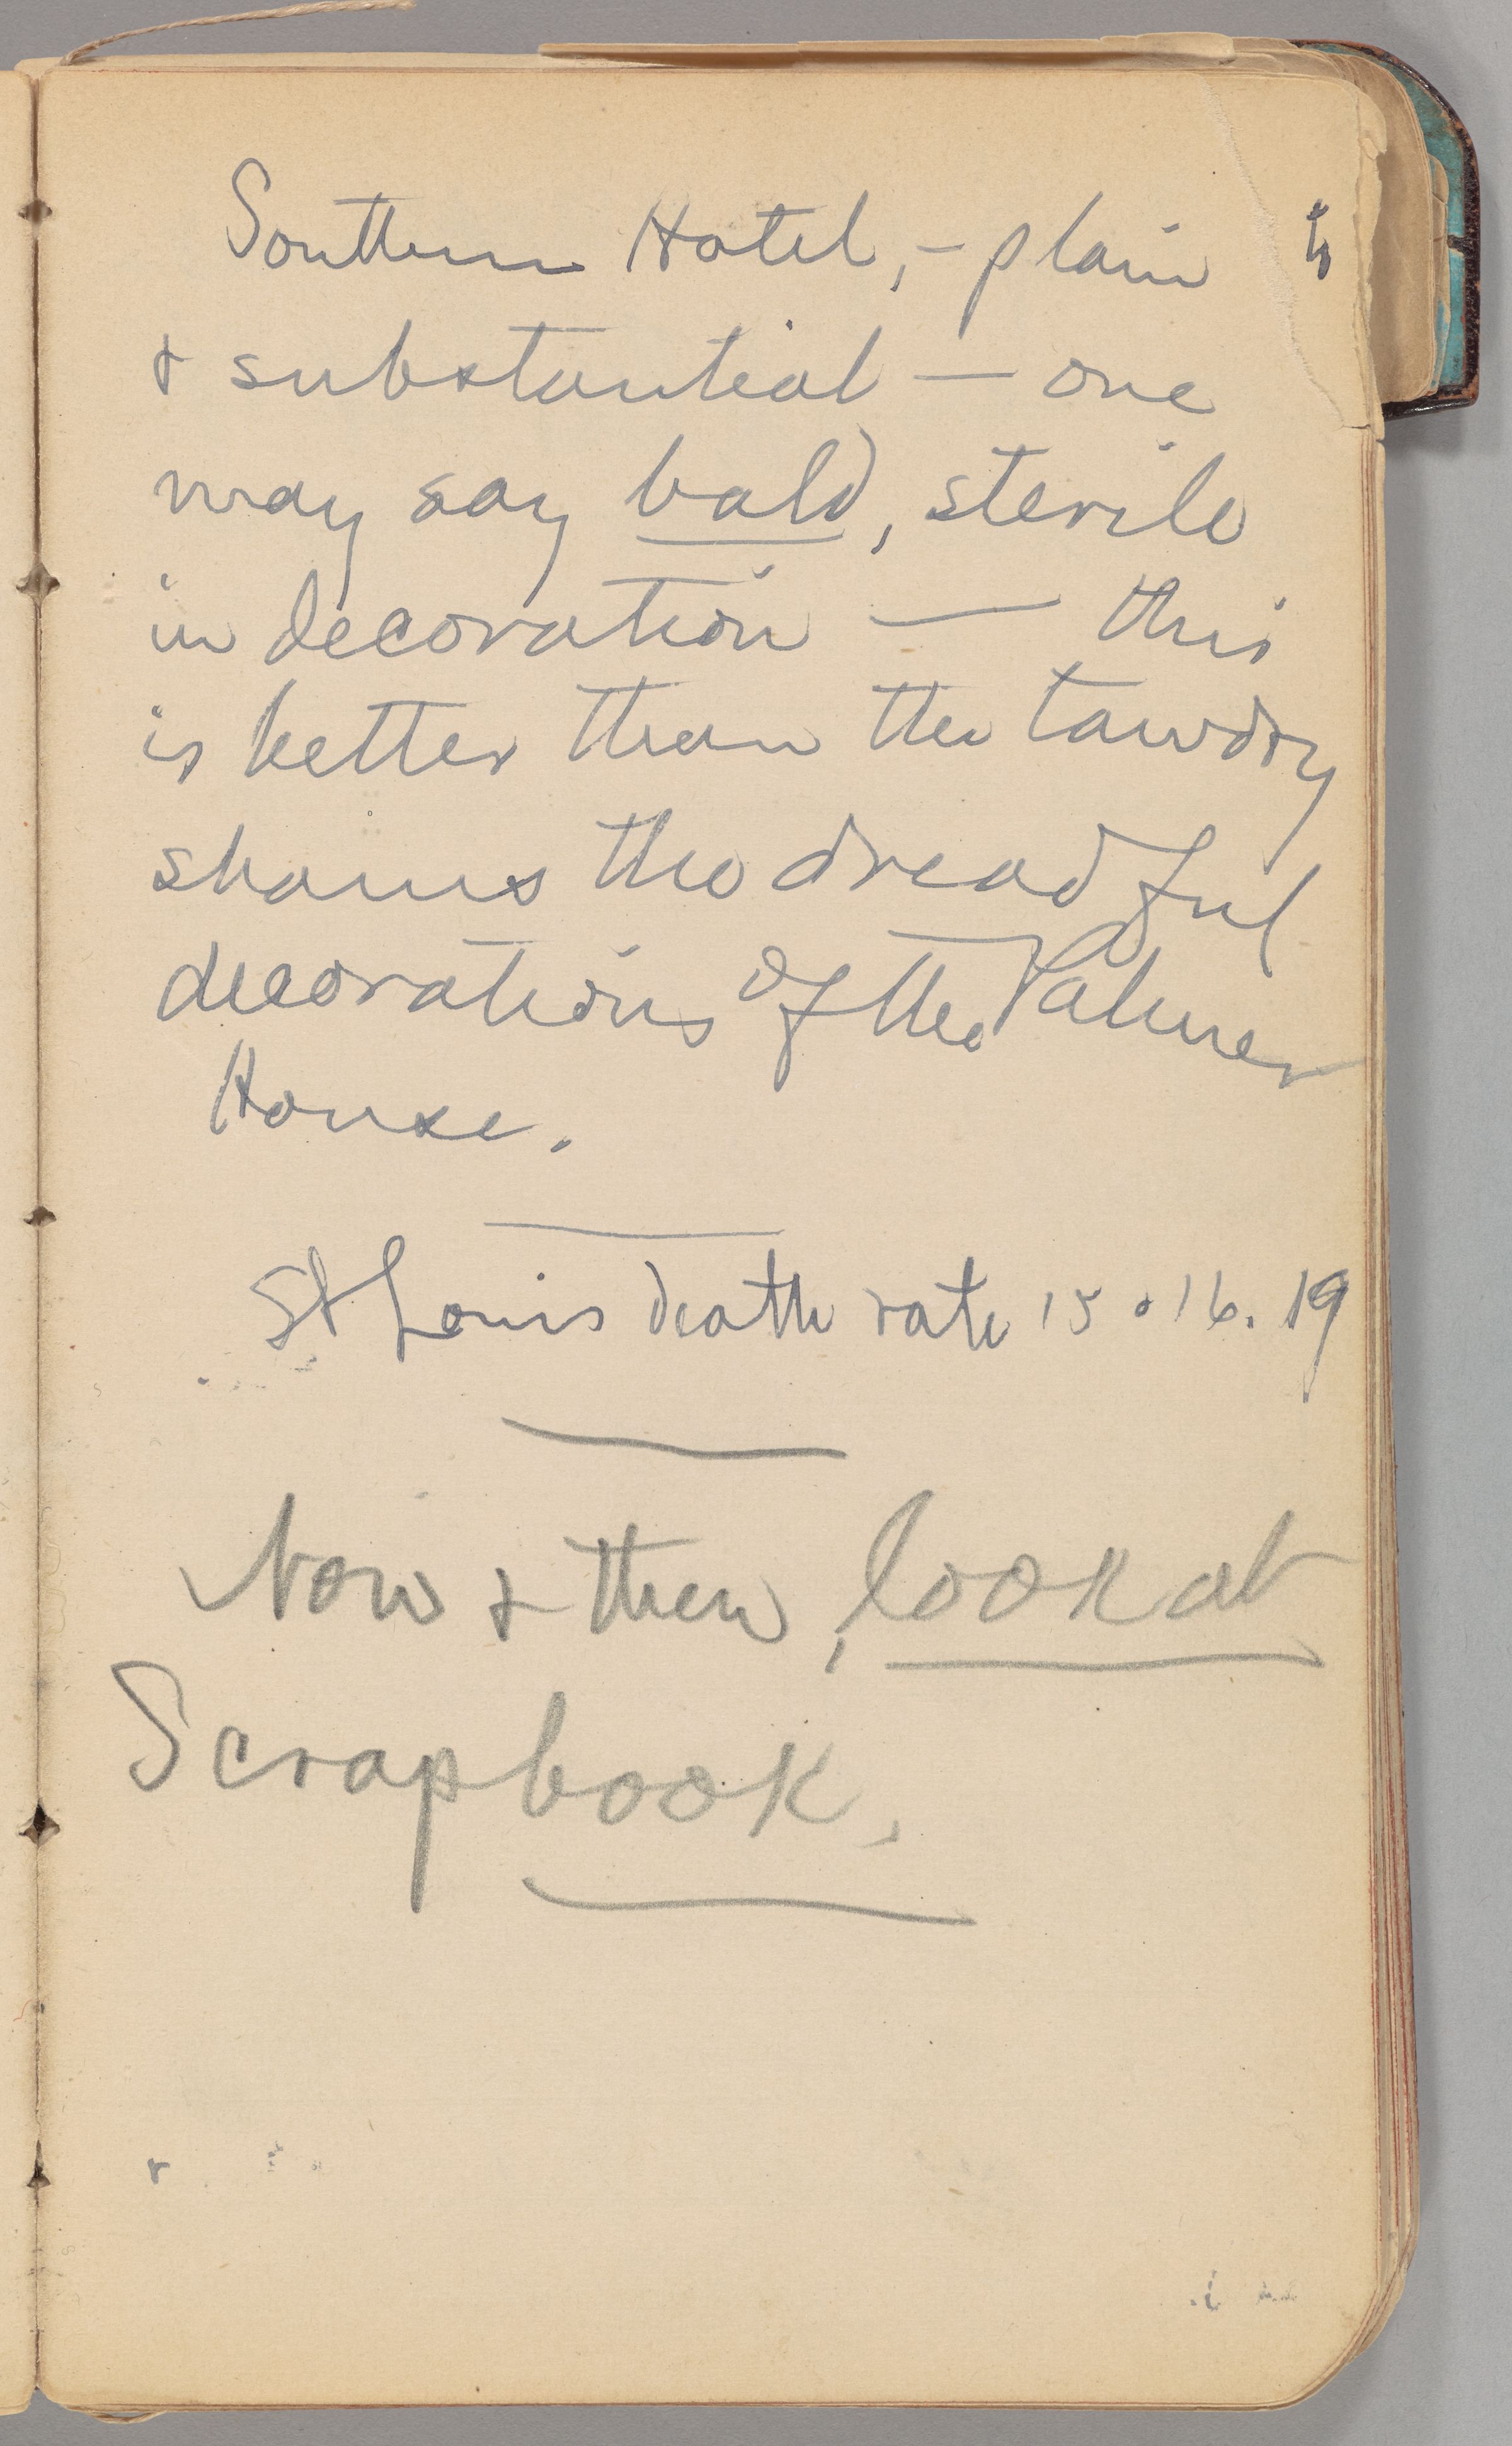 Southern Hotel, – plain
& substantial — one
may say bald, sterile
in decoration — this
is better than the tawdry
shams the dreadful
decorations of the Palmer
House.
St Louis death rate 15 . 16. 19
Now & then, look at
Scrapbook.